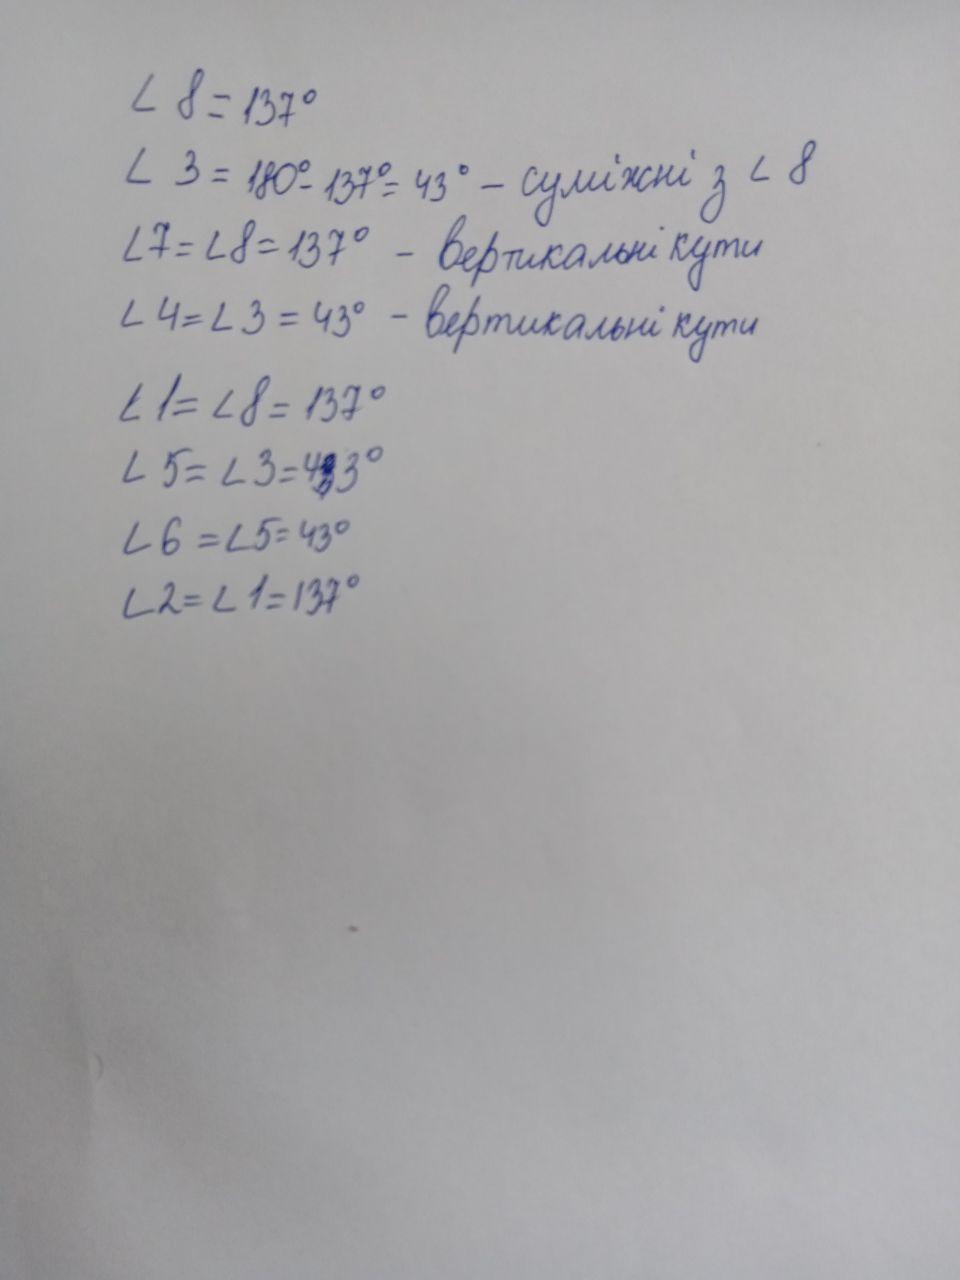 ∠ 8 = 137°
∠ 3 = 180° - 137° = 43° - суміжні з ∠ 8
∠7 = ∠8 = 137° - вертикальні кути
∠ 4 = ∠ 3 = 43° - вертикальні кути
∠ 1 = ∠ 8 = 137°
∠ 5 = ∠ 3 = 43°
∠6 = ∠5 = 43°
∠2 = ∠ 1 = 137°